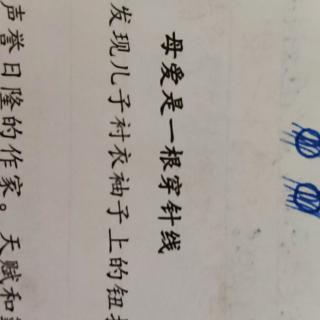 母爱是一根穿针线
发现儿子衬衣袖子上的钮
声誉日隆的作家。天赋和